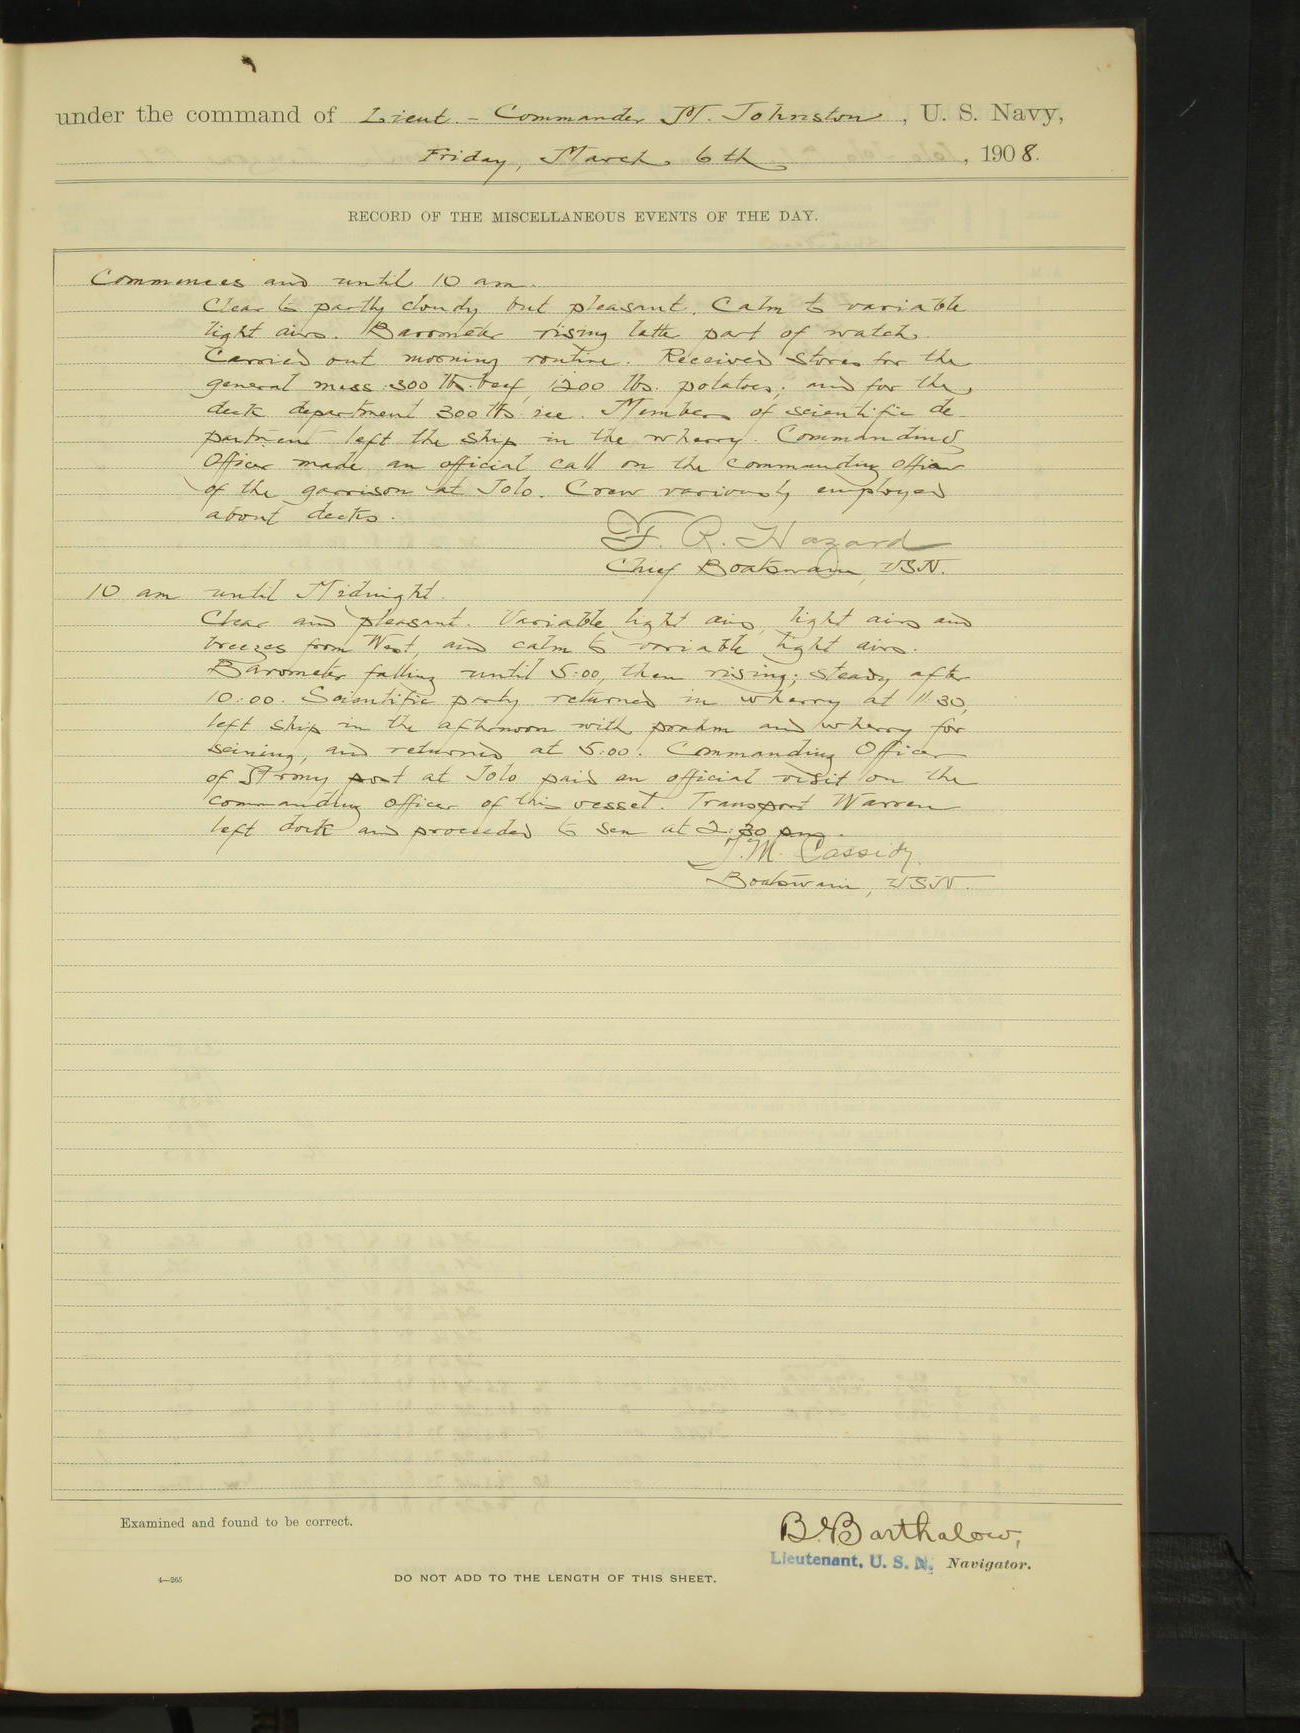 under the command of Lieut.-Commander M. Johnston, U. S. Navy,
Friday, March 6th, 1908.
RECORD OF THE MISCELLANEOUS EVENTS OF THE DAY.
Commences and until 10 am.
Clear to partly cloudy but pleasant. Calm to variable
light airs. Barometer rising latter part of watch.
Carried out morning routine. Received stores for the
general mess 300 lbs. beef, 1200 lbs. potatoes; and for the
deck department 300 lbs ice. Members of scientific de-
partment left the ship in the wherry. Commanding
Officer made an official call on the commanding officer
of the garrison at Jolo. Crew variously employed
about decks.
F. R. Hazard
Chief Boatswain, USN.
10 am until Midnight.
Clear and pleasant. Variable light airs, light airs and
breezes from West, and calm to variable light airs.
Barometer falling until 5:00, then rising; steady after
10:00. Scientific party returned in wherry at 11:30,
left ship in the afternoon with prahm and wherry for
seining, and returned at 5:00. Commanding Officer
of Army post at Jolo paid an official visit on the
commanding officer of this vessel. Transport Warren
left dock and proceeded to sea at 2:30 pm.
J. M. Cassidy.
Boatswain, USN.
Examined and found to be correct.
B. Barthalow,
Lieutenant, U. S. N. Navigator.
4—265
DO NOT ADD TO THE LENGTH OF THIS SHEET.